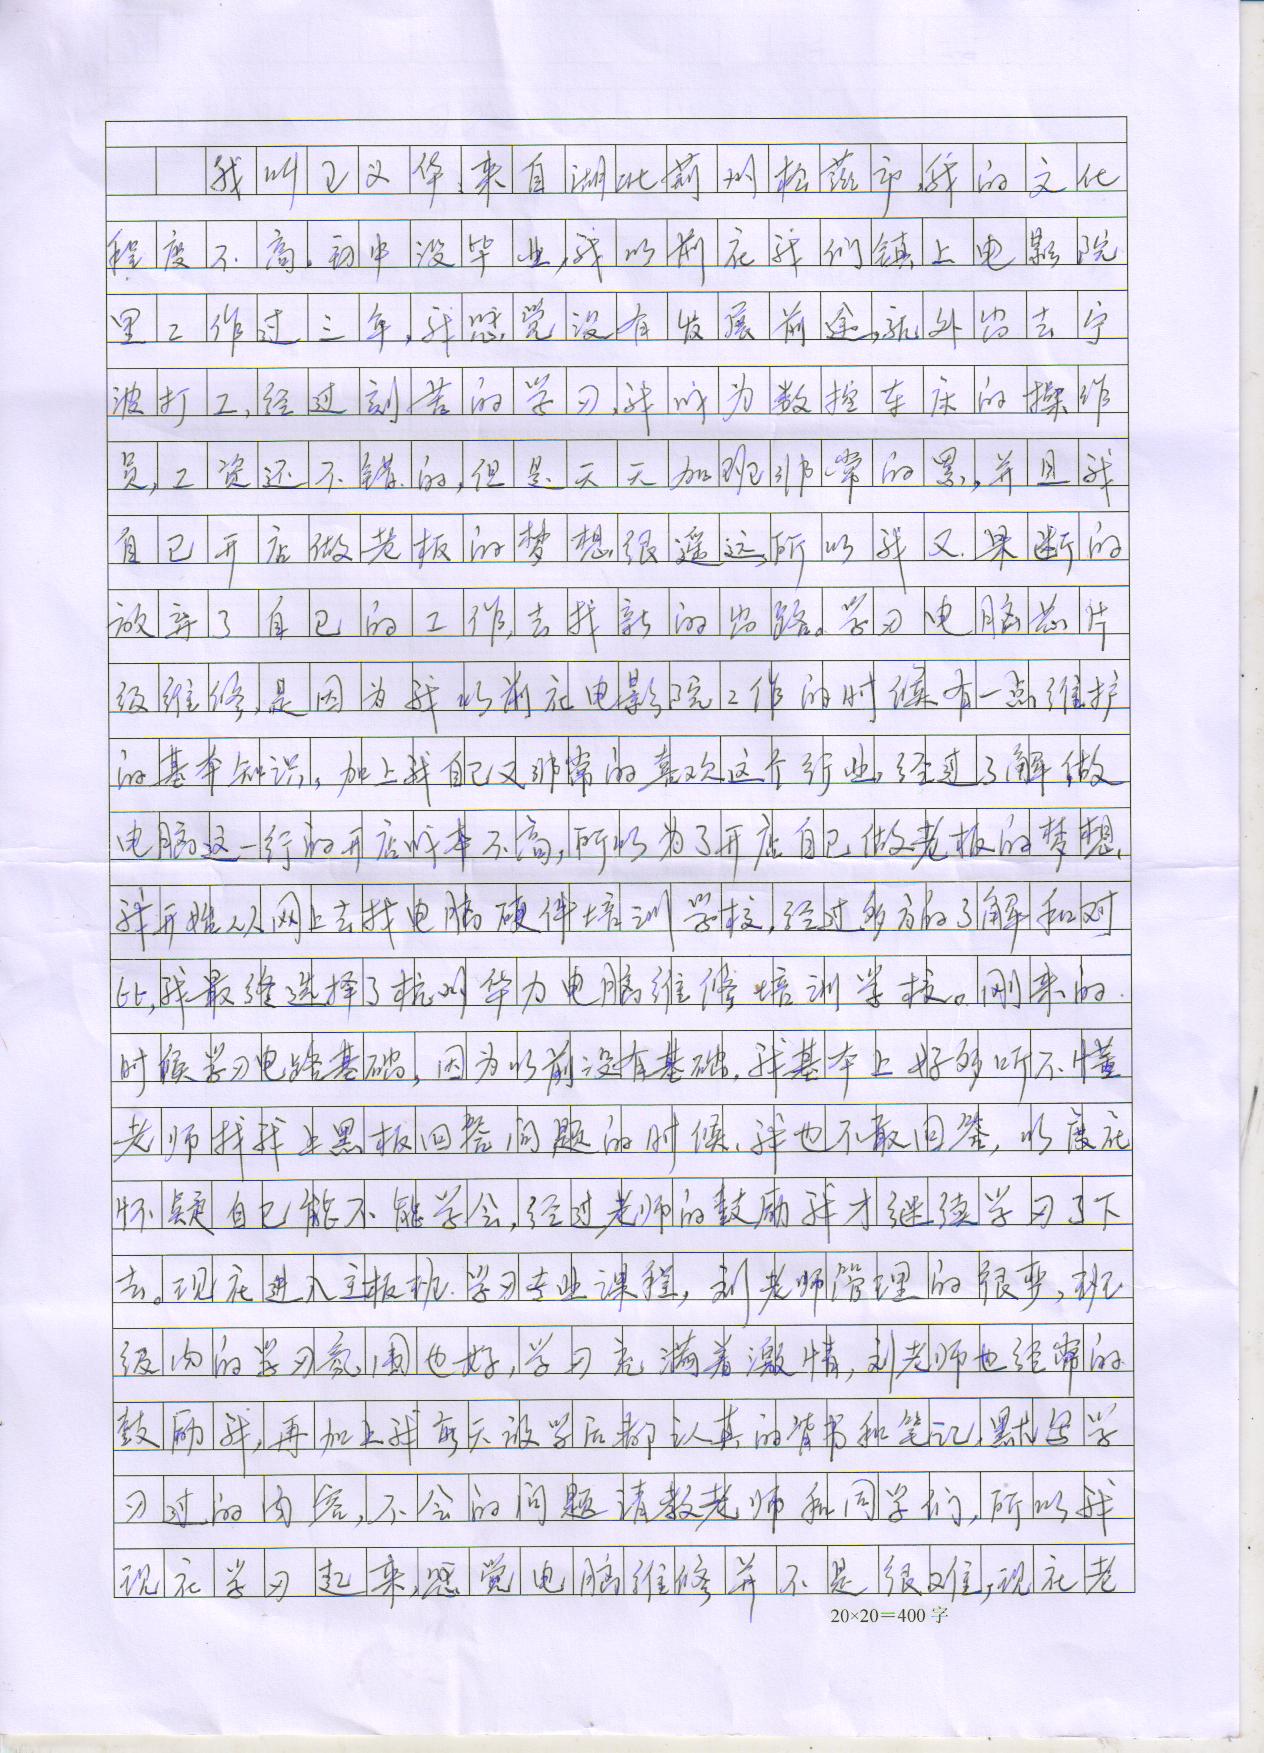 我叫王义华,来自湖北荆州松兹市,我的文化
程度不高,初中没毕业,我以前在我们镇上电影院
里工作过三年,我感觉没有发展前途,就外出去宁
波打工,经过刻苦的学习,我成为数控车床的操作
员,工资还不错的,但是天天加班非常的累,并且我
自己开店做老板的梦想很遥远,所以我又果断的
放弃了自己的工作,去找新的出路。学习电脑芯片
级维修,是因为我以前在电影院工作的时候有一点维护
的基本知识,加上我自己又非常的喜欢这个行业,经过了解做
电脑这一行的开店成本不高,所以为了开店自己做老板的梦想,
我开始从网上去找电脑硬件培训学校,经过多方的了解和对
比,我最终选择了杭州华力电脑维修培训学校。刚来的
时候学习电路基础,因为以前没有基础,我基本上好多听不懂
老师找我上黑板回答问题的时候,我也不敢回答,以度在
怀疑自己能不能学会,经过老师的鼓励我才继续学习了下
去。现在进入主板班学习专业课程,刘老师管理的很严,班
级内的学习氛围也好,学习充满着激情,刘老师也经常的
鼓励我,再加上我每天放学后都认真的背书和笔记,默写学
习过的内容,不会的问题请教老师和同学们,所以我
现在学习起来,感觉电脑维修并不是很难,现在老
20×20=400字